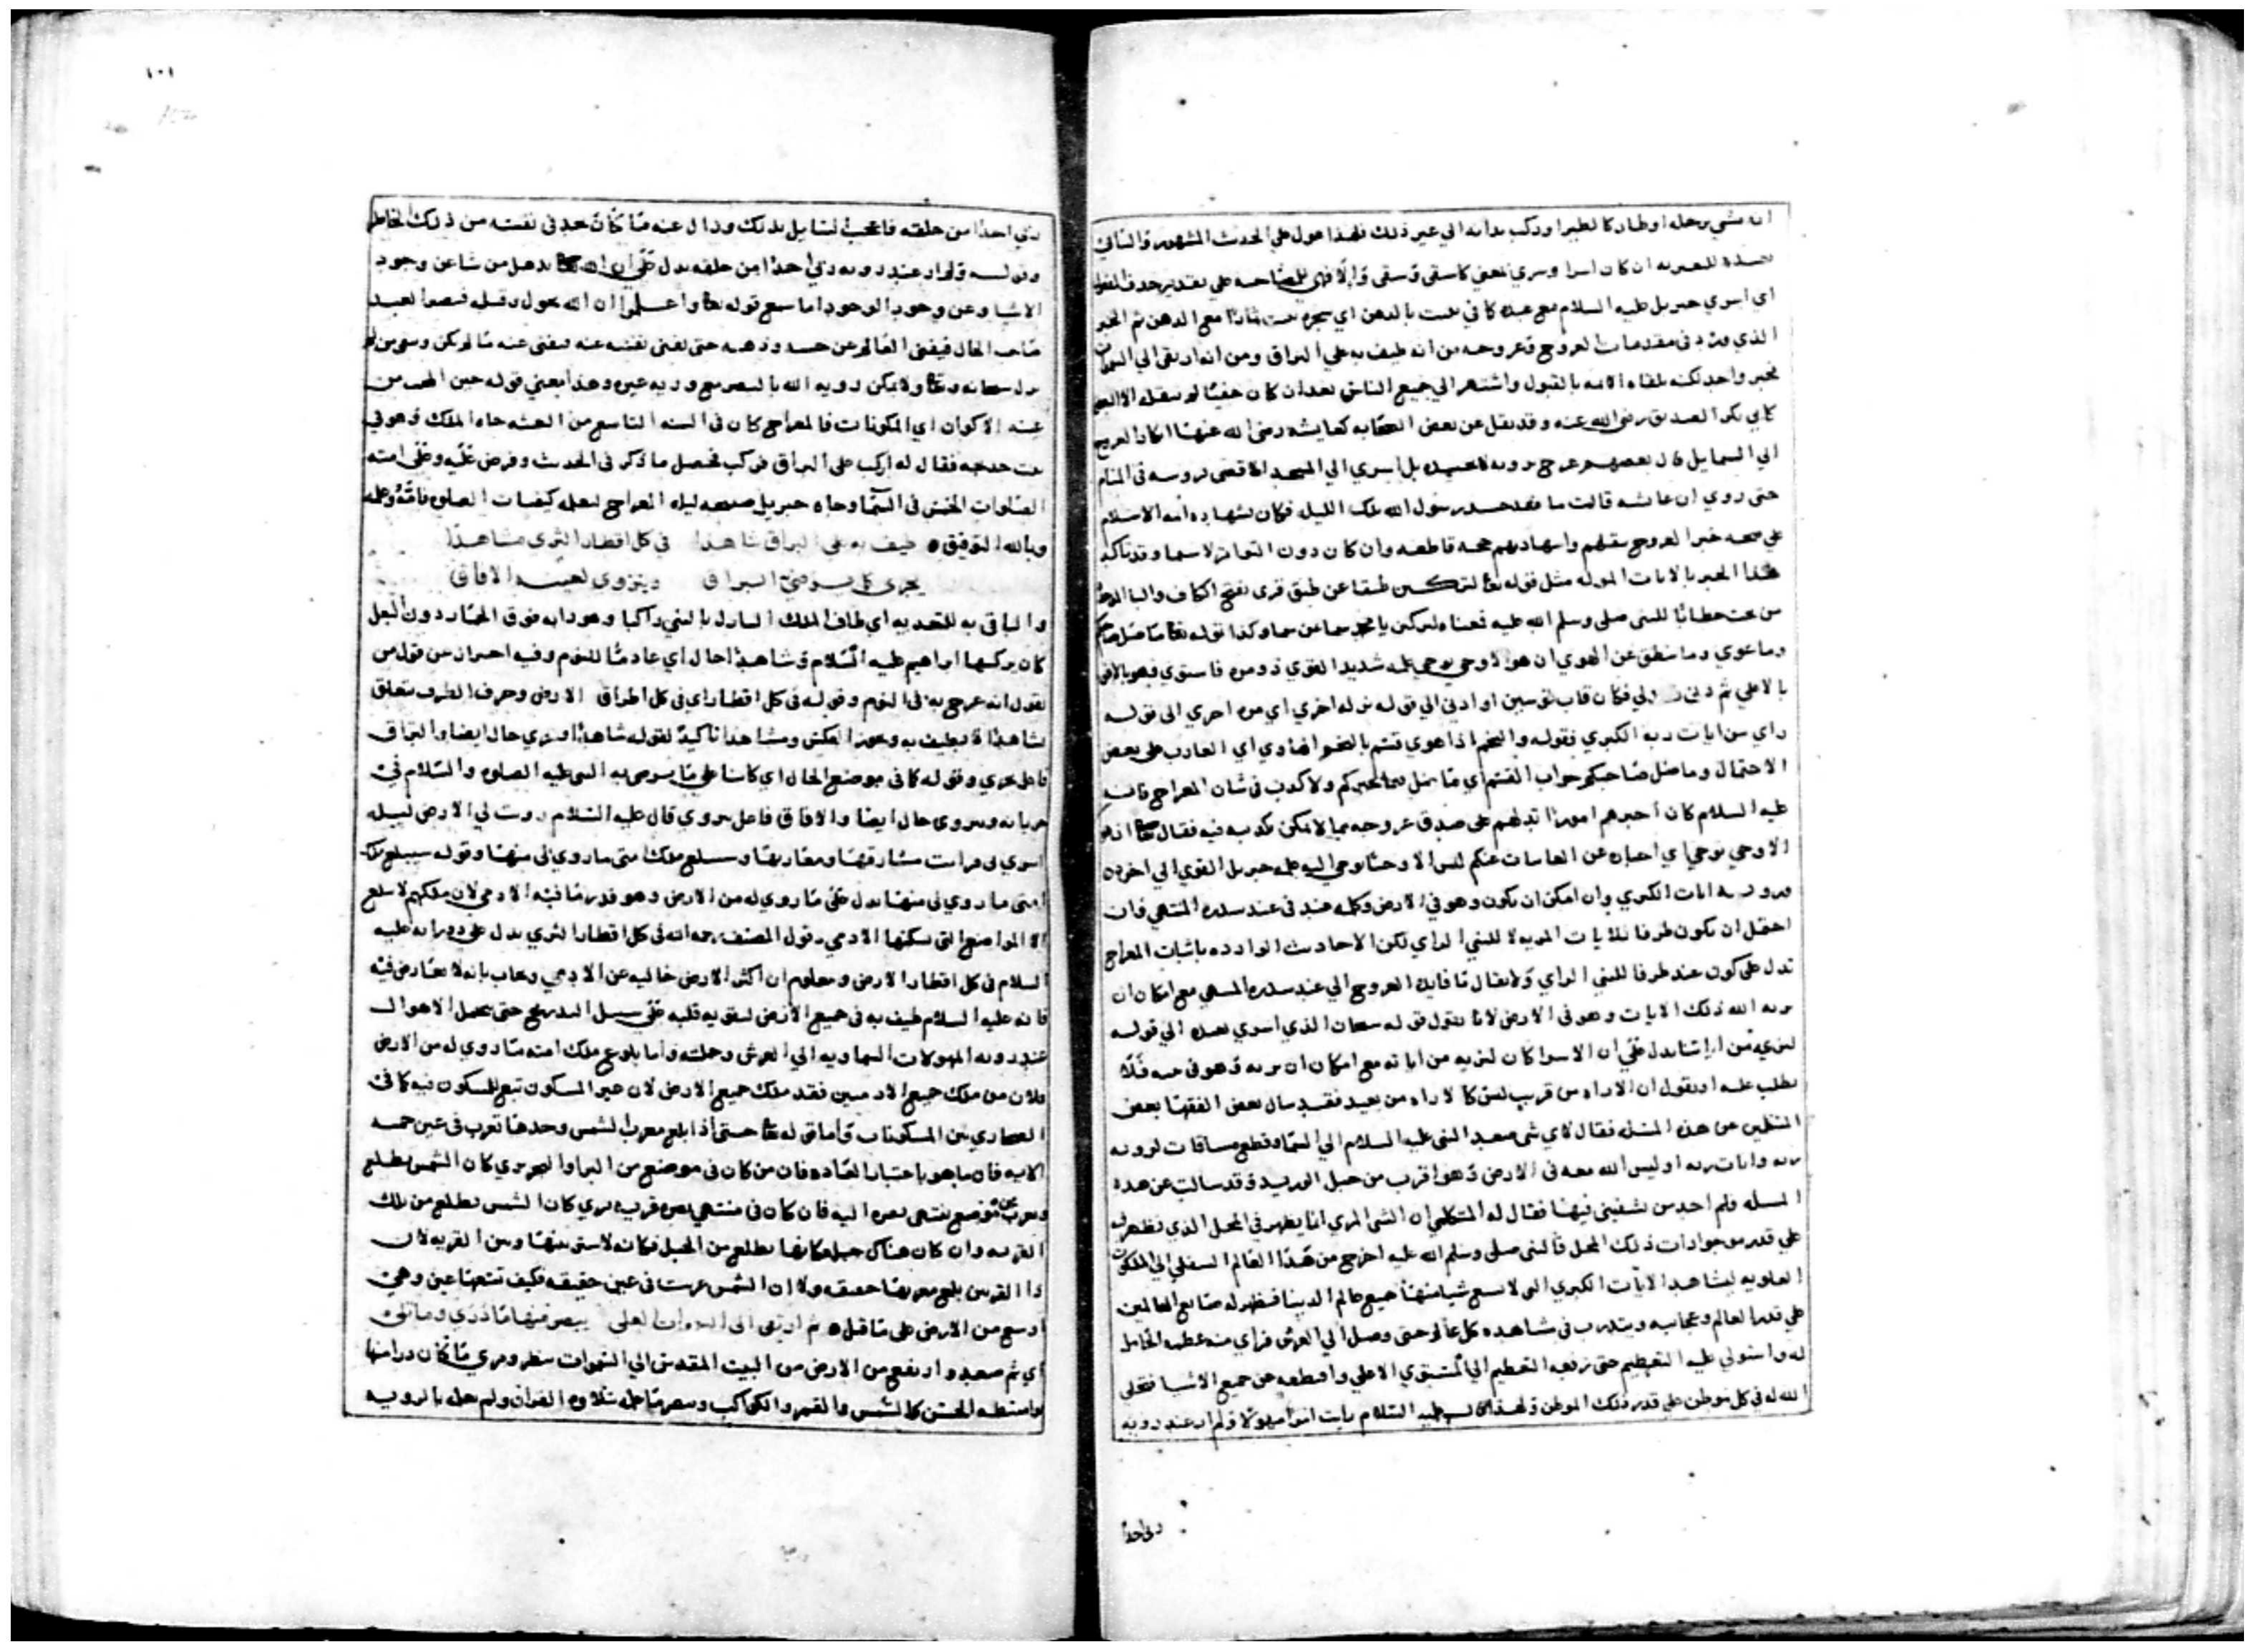 انه مشي برجله او طار كالطير او ركب بدابه الي غير ذلك فلهذا عول علي الحديث المشهور والباقي
اي اسري جبريل عليه السلام مع عبده كما في تنبت بالدهن اي شجره تنبت ثمارا مع الدهن ثم الخبر
الذي ورد في مقدمات العروج وعروجه من انه طيف به علي البراق ومن انه ارتقي الي السموات
خبر واحد لكنه تلقاه الامه بالقبول واشتهر الي جميع الناس بعد ان كان خفيا لم ينقله الا البعض
كابي بكر الصديق رضي الله عنه وقد نقل عن بعض الصحابه كعايشه رضي الله عنها انكار العروج
الي السما بل قال بعضهم عرج بروحه لا بجسده بل اسري الي المسجد الاقصي بروحه في المنام
حتي روي ان عائشه قالت ما فقد جسد رسول الله تلك الليله فكان لشهاده ائمه الاسلام
علي صحه خبر العروج بنقلهم واسنادهم حجه قاطعه وان كان دون التواتر لا سيما وقد تاكد
هذا الخبر بالايات الموله مثل قوله تعا لتركبن طبقا عن طبق قري بفتح الكاف والبا الموحده
من تحت خطابا للنبي صلي وسلم الله عليه فمعناه لتركبن يا محمد سما عن سما وكذا قوله تعا ما ضل صاحبكم
وما غوي وما ينطق عن الهوي ان هو الا وحي يوحي علمه شديد القوي ذو مره فاستوي وهو بالافق
بالاعلي ثم دني فتدلي فكان قاب قوسين او ادني الي قوله نزله اخري اي مره اخري الي قوله
راي من ايات ربه الكبري فقوله والنجم اذا هوي قسم بالنجم الهاوي اي الغارب علي بعض
الاحتمال وما ضل صاحبكم جواب القسم اي ما ضل بما اخبركم ولا كذب في شان المعراج فانه
عليه السلام كان اخبرهم امورا تدلهم علي صدق عروجه بما لا يمكن تكذيبه فيه فقال تعا ان هو
الا وحي يوحي اي اخباره عن الغايبات عنكم ليس الا وحيا يوحي اليه علمه جبريل القوي الي اخره
ورويه ايات الكبري وان امكن ان يكون وهو في الارض وكلمه عند في عند سدره المنتهي فان
احتمل ان يكون طرفا للايات المريه لا للنبي الراي لكن الاحاديث الوارده باثبات المعراج
تدل علي كون عند طرفا للنبي الراي ولا يقال ما فايده العروج الي عند سدره المنتهي مع امكان ان
يريه الله ذلك الايات وهو في الارض لانا نقول قوله سبحان الذي اسري بعبده الي قوله
لنريه من اياتنا يدل علي ان الاسرا كان لنريه من اياته مع امكان ان يريه وهو في حبه فلا
يطلب عليه او نقول ان الاراه من قريب ليس كالاراه من بعيد فقد سال بعض الفقها بعض
المتكلمين عن هذه المسئله فقال لاي شي صعد النبي عليه السلام الي السما وقطع مسافات لرويه
ربه وايات ربه اوليس الله معه في الارض وهو اقرب من حبل الوريد وقد سالت عن هذه
المسله فلم اجد من يشفيني فيها فقال له المتكلم ان الشي المري انما يظهر في المحل الذي يظهر فيه
علي قدر موجودات ذلك المحل فالنبي صلي وسلم الله عليه اخرج من هذا العالم السفلي الي الملكوت
العلويه ليشاهد الايات الكبري التي لا يسع شيا منها جميع عالم الدنيا فيظهر له صانع العالمين
علي قدر العالم وعجايبه ويتدرب في مشاهده كل عالم حتي وصل الي العرش فراي منه عظمه الحامل
له واستولي عليه التعظيم حتي رفعه التعظيم الي المستوي الاعلي واقطعه عن جميع الاشيا فتجلي
الله له في كل موطن علي قدر ذلك الموطن ولهذا قال عليه السلام رايت انوا مهولا ولم ار عند رويه
ربي احدا
١٠١
ربي احدا من خلقه فاعجب السايل بذلك وزال عنه ما كان يجد في نفسه من ذلك الخاطر
وقوله ولم ار عند رويه ربي احدا من خلقه يدل علي ان الله تعا يذهل من شا عن وجود
الاشيا وعن وجود الوجود اما سمع قوله تعا واعلموا ان الله يحول وقلبه فيصير العبد
صاحب الحال فيفني العالم عن حسه وذهنه حتي تفني نفسه عنه فيفني عنه ما لم يكن وبقي من لم
يزل سبحانه وتعا ولا يمكن رويه الله بالبصر مع رويه غيره وهذا يعني قوله حين المحب من
عنه الاكوان اي المكونات فالمعراج كان في السنه التاسع من البعثه جاه الملك وهو في
بيت خديجه فقال له اركب علي البراق فركب فحصل ما ذكر في الحديث وفرض عليه وعلي امته
الصلوات الخمس في السما وجاه جبريل صبيحه ليله المعراج لعلمه كيفيات الصلوه فامه وعلمه
وبالله التوفيق ٥ طيف به علي البراق شاهدا في كل اقطار الثري مشاهدا
يجري كما يرضي البراق وينزوي لعينه الافاق
والباقي به للتعديه اي طاف الملك النازل بالنبي راكبا وهو دابه فوق الحمار دون البغل
كان يركبها ابراهيم عليه السلام وشاهدا حال اي عادما للنوم وفيه احتراز عن قول من
يقول انه عرج به في النوم وقوله في كل اقطار اي في كل اطراق الارض وحرف الظرف يتعلق
بشاهدا او بطيف به ويجوز العكس ومشاهدا تاكيد لقوله شاهدا ويجري حال ايضا والبراق
فاعل يجري وقوله كما في موضع الحال اي كاينا علي ما يرضي به النبي عليه الصلوه والسلام في
جريانه وينزوي حال ايضا والافاق فاعل ينزوي قال عليه السلام زويت لي الارض ليله
اسري لي فرايت مشارقها ومغاربها وسيبلغ ملك امتي ما زوي لي منها وقوله سيبلغ ملك
امتي ما زوي لي منها يدل علي ما زوي له من الارض وهو قدر ما فيه الادمي لان ملكهم لا يبلغ
الا المواضع التي يسكنها الادمي وقول المصنف رحمه الله في كل اقطار الثري يدل علي دورانه عليه
السلام في كل اقطار الارض ومعلوم ان اكثر الارض خاليه عن الادمي ويجاب بانه لا تعارض فيه
فانه عليه السلام طيف به في جميع الارض لتقويه قلبه علي سبيل التدريج حتي يحمل الاهوال
عند رويه المهولات السماويه الي العرش وحملته واما بلوغ ملك امته ما زوي له من الارض
فلان من ملك جميع الادميين فقد ملك جميع الارض لان غير المسكون تبع للمسكون فيه كما في
الصحاري بين المسكونات واما قوله تعا حتي اذا بلغ مغرب الشمس وجدها تغرب في عين حمئه
الايه فان ما هو باعتبار العاده فان من كان في موضع من البر او البحر يري كان الشمس يطلع
ويغرب من موضع ينتهي بصره اليه فان كان في منتهي بصره قريه يري كان الشمس يطلع من تلك
القريه وان كان هناك جبل فكانها يطلع من الجبل فكانه لا شي بينها وبين القريه لان
ذا القرنين بلغ مغربها حقيقه ولا ان الشمس غربت في عين حقيقه فكيف تسعها عين وهي
اوسع من الارض علي ما قيل ٥ ثم ارتقي الي السموات العلي يبصر منها ما دني وما تلي
اي ثم صعد وارتفع من الارض من البيت المقدس الي السموات ينظر ويري ما كان دراسها
بواسطه الحس كالشمس والقمر والكواكب ويبصر ما علمه بتلاوه القران ولم يعلمه بالرويه